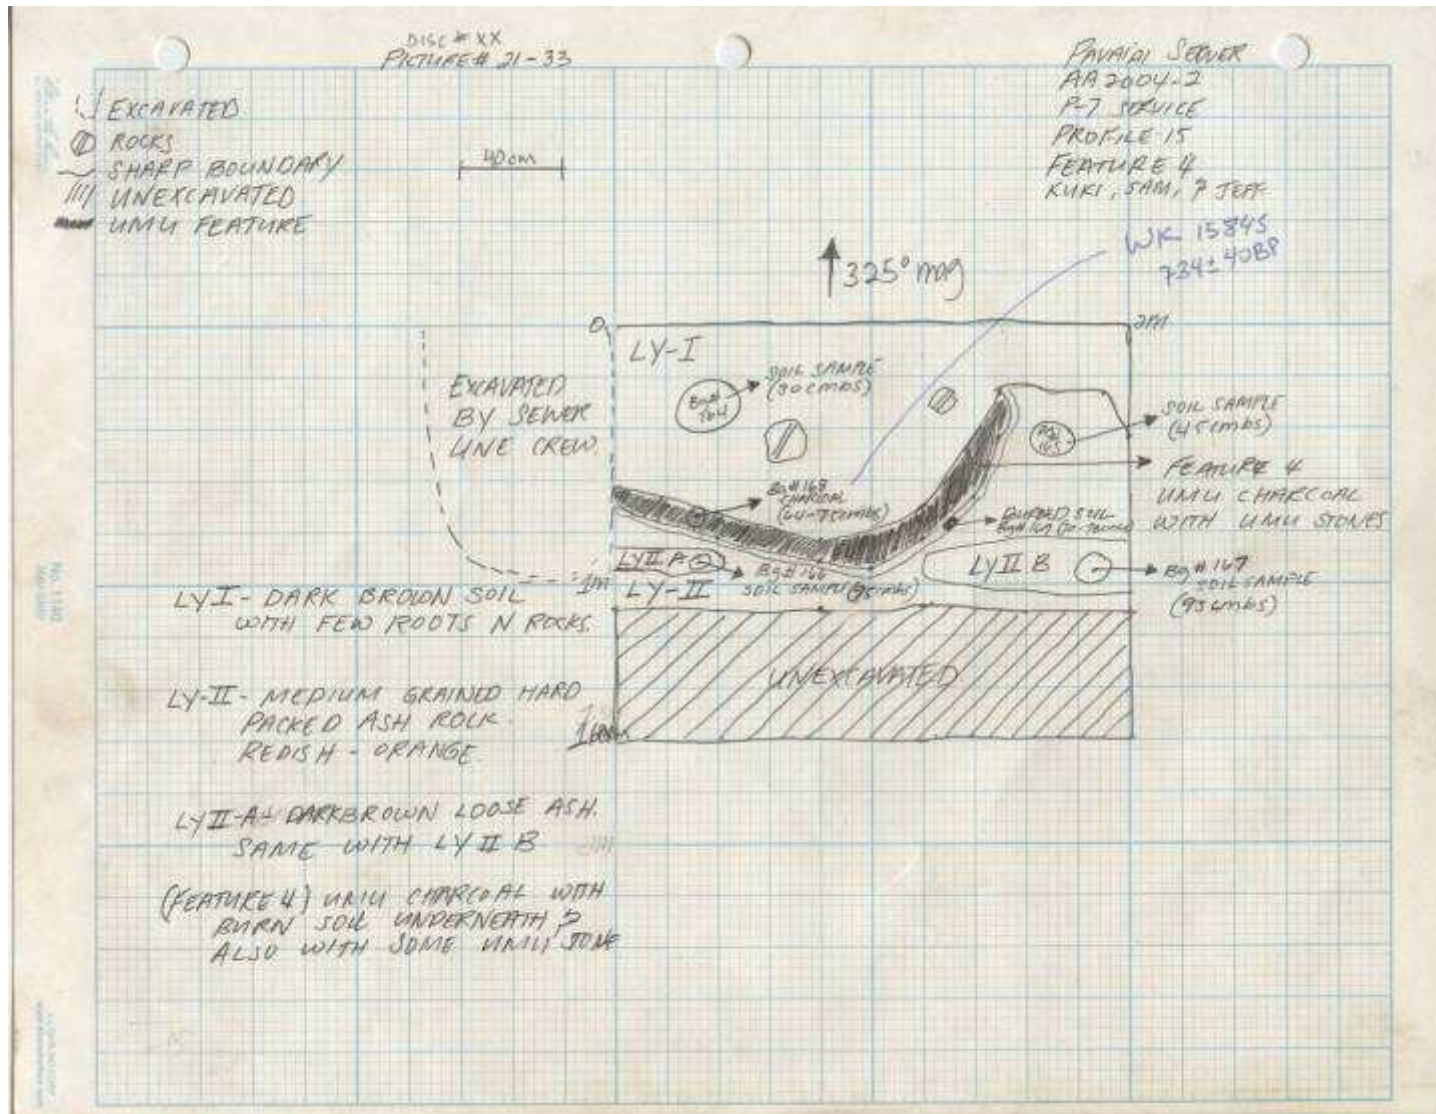 DISC # XX
PICTURE# 21-33
PAVAIAI SEWER
AA2004-2
P-7 SERVICE
PROFILE 15
FEATURE 4
KUKI, SAM, & JEFF
EXCAVATED
ROCKS
SHARP BOUNDARY
UNEXCAVATED
UMU FEATURE
40cm
WK 15845
734±40BP
325° mag
0
2M
LY-I
SOIL SAMPLE
(30cmbs)
EXCAVATED
BY SEWER
LINE CREW.
SOIL SAMPLE
(45cmbs)
FEATURE 4
UMU CHARCOAL
WITH UMU STONES
Bg#168
CHARCOAL
(64-75cmbs)
SOIL
LYII A
LYII B
Bg#166
SOIL SAMPLE (95cmbs)
Bg#167
SOIL SAMPLE
(93cmbs)
1m
LY-II
UNEXCAVATED
LYI- DARK BROWN SOIL
WITH FEW ROOTS N ROCKS.
LY-II- MEDIUM GRAINED HARD
PACKED ASH ROCK.
REDISH-ORANGE.
LYII-A- DARKBROWN LOOSE ASH.
SAME WITH LYII B
(FEATURE 4) UMU CHARCOAL WITH
BURN SOIL UNDERNEATH &
ALSO WITH SOME UMU STONE